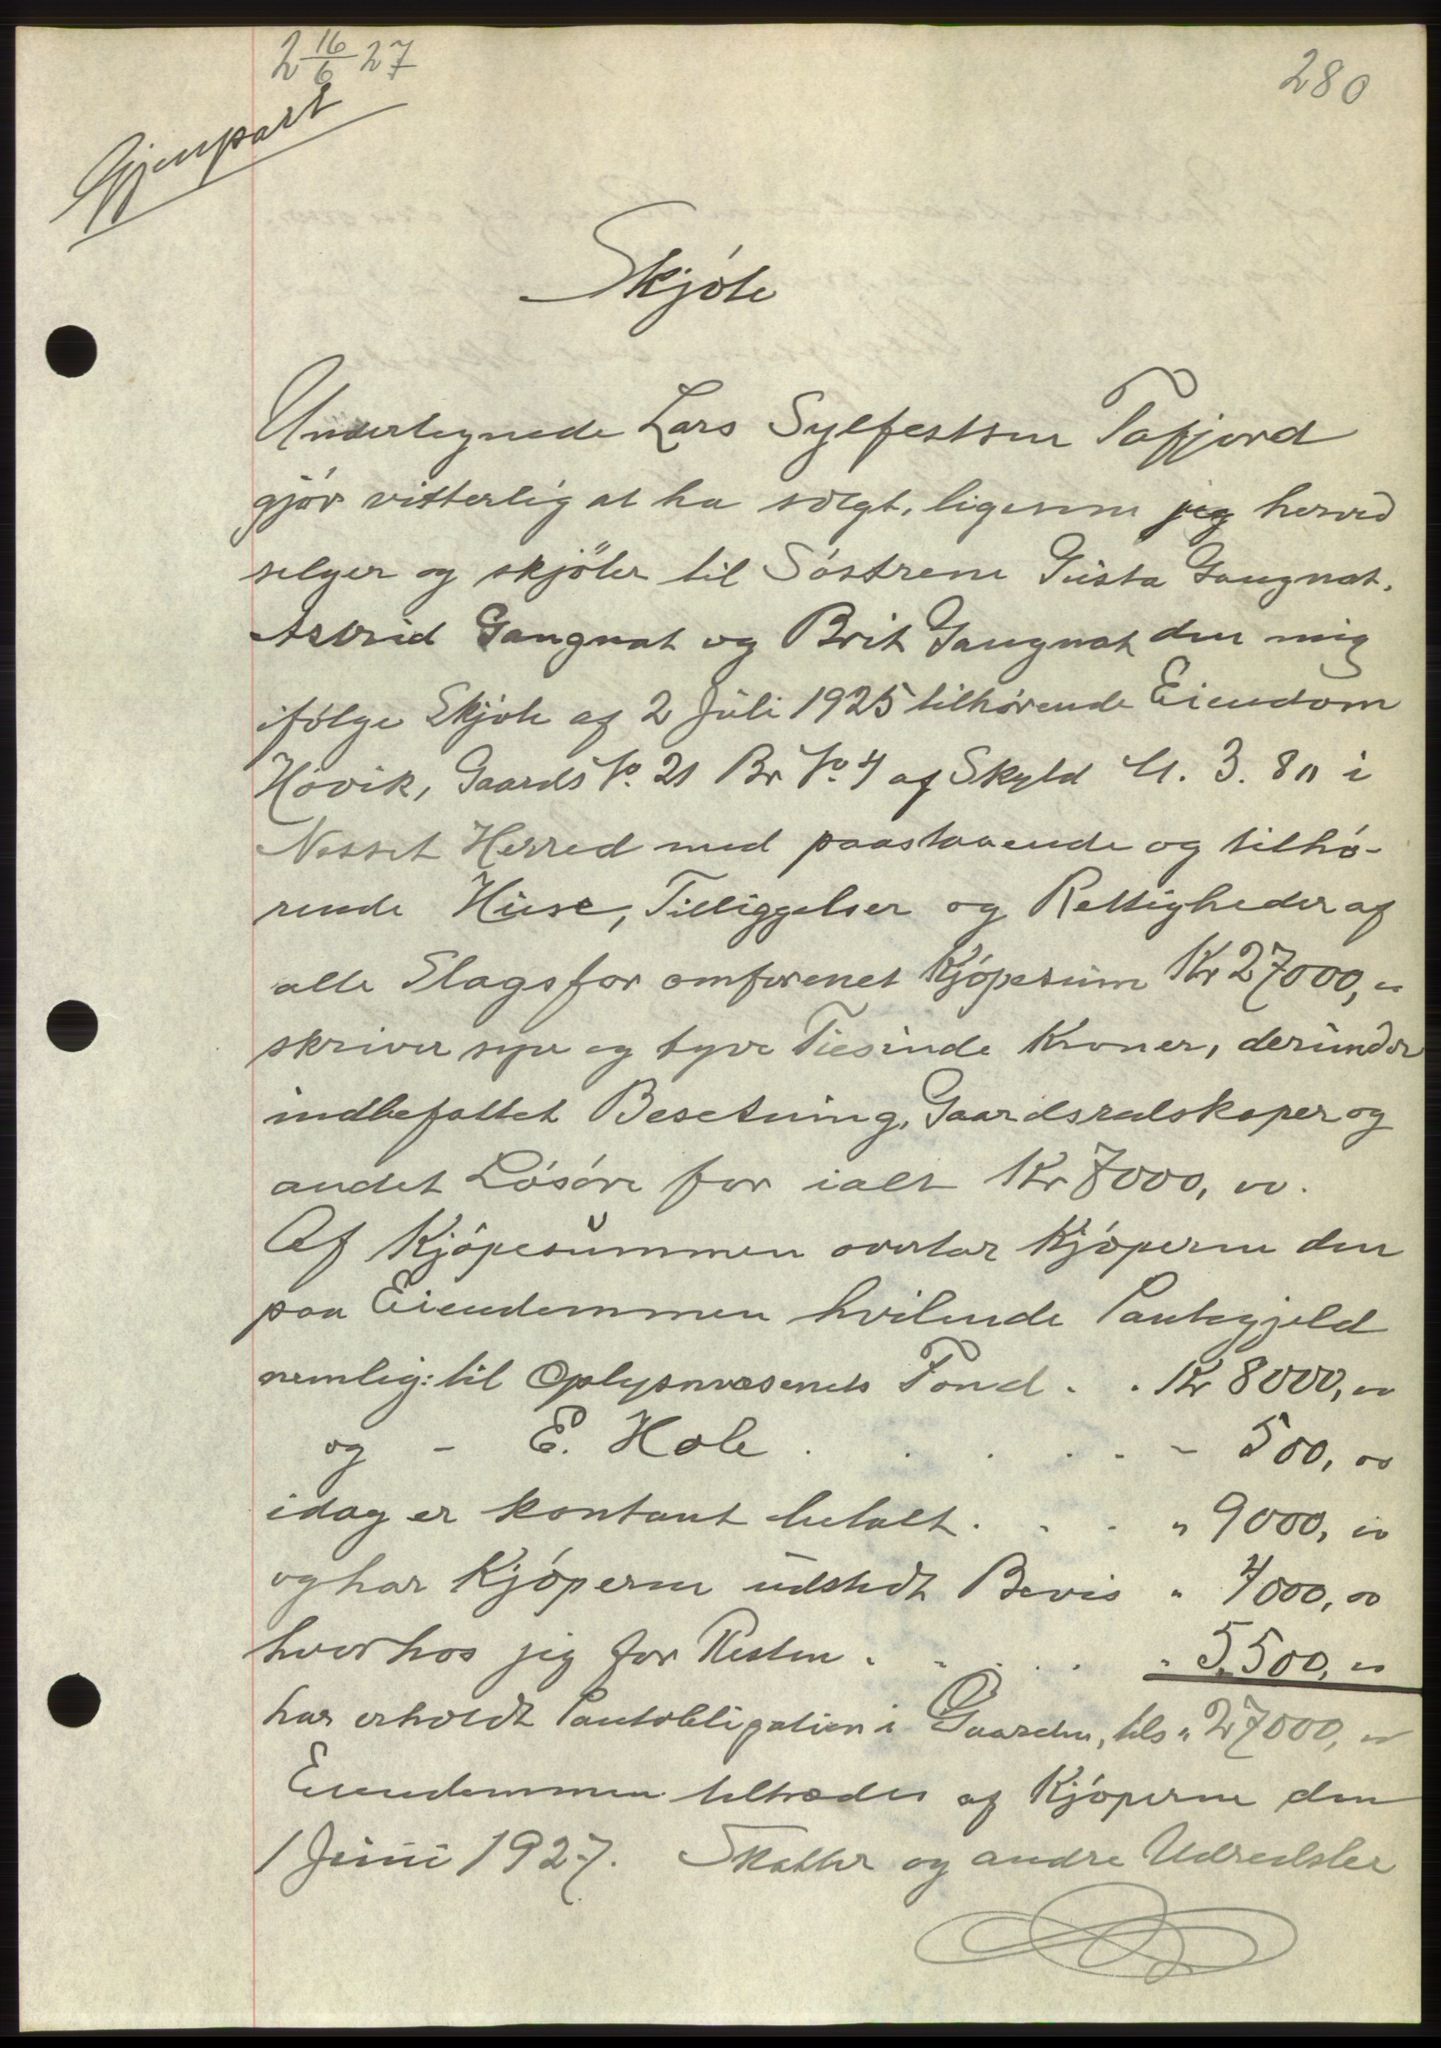 2 16/6 27
280
Gjenpart
Skjöte
Undertegnede Lars Sylfestsen Tafjord
gjör vitterlig at ha solgt, ligesom jeg herved
selger og skjöter til Söstrene Gusta Gangnat,
Astrid Gangnat og Brit Gangnat den mig
ifölge Skjöte af 2 Juli 1925 tilhörende Eiendom
Hovik, Gaards No. 21 Br No. 4 af Skyld M. 3. 80 i
Nesset Herred med paastaaende og tilhö-
rende Huse, Tilliggelser og Rettigheder af
alle Slags for omforenet Kjöpesum Kr 27000, 00
skriver syv og tyve Tusinde Kroner, derunder
indbefattet Besetning, Gaardsredskaper og
andet Lösöre for ialt Kr 7000, 00.
Af Kjöpesummen overtar Kjöperne den
paa Eiendommen hvilende Pantegjeld
nemlig: til Oplysnvæsenets Fond . . Kr 8000, 00
og - E. Hole . . . . . . - 500, 00
idag er kontant betalt . . . . " 9000, 00
og har Kjöperne udstedt Bevis " 4000, 00
hvorhos jeg for Resten . . . . . " 5,500, 00
har erholdt Pantobligation i Gaarden, tils " 27000, 00
Eiendommen tiltrædes af Kjöperne den
1 Juni 1927. Skatter og andre Udredsler